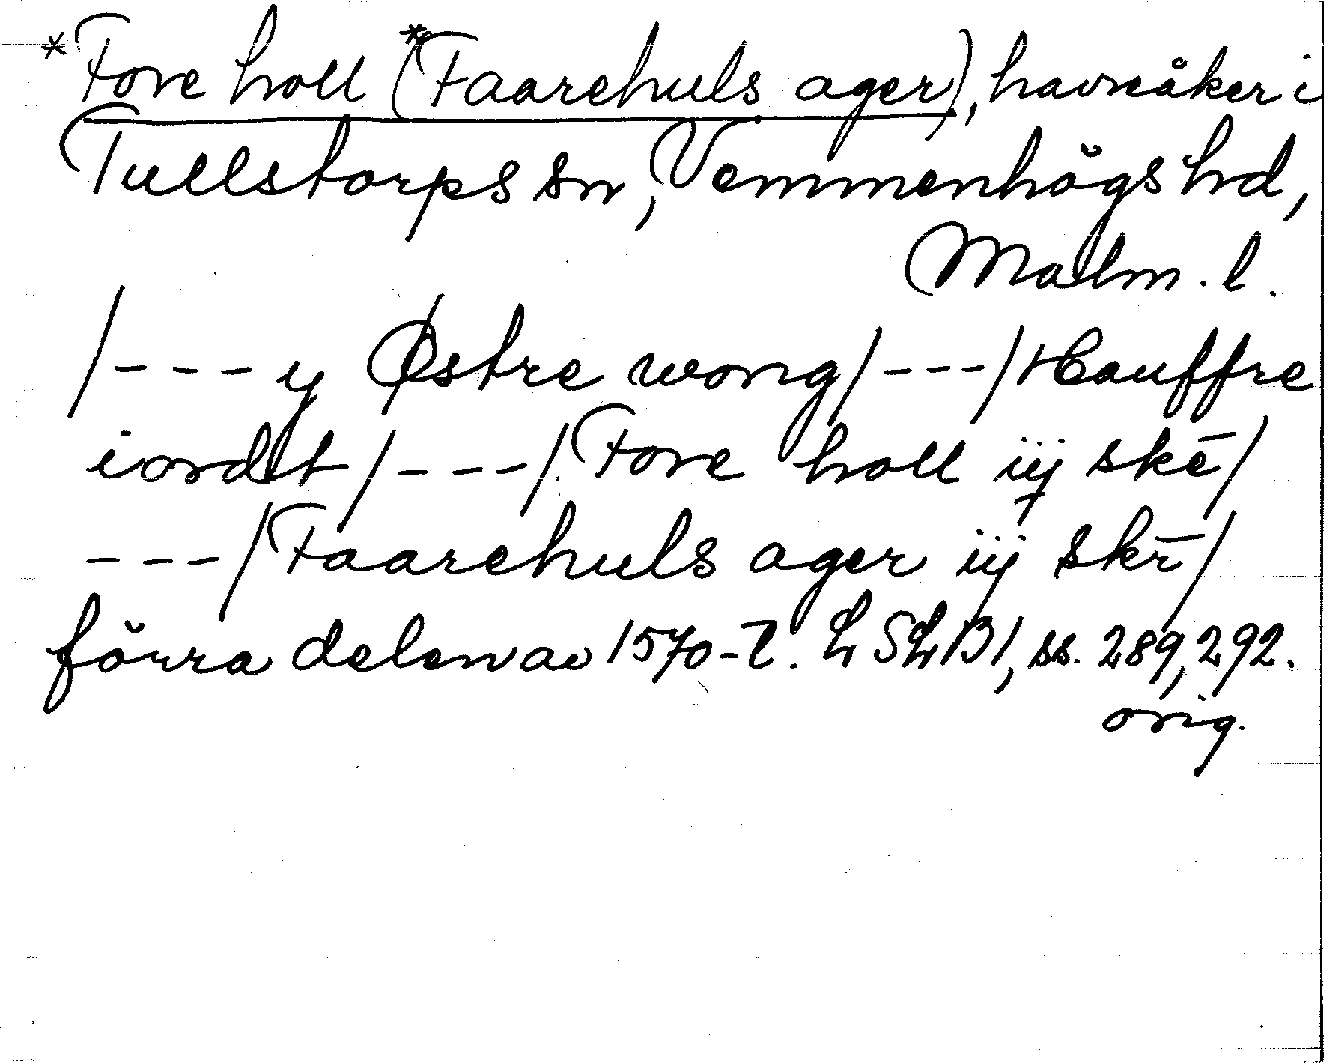 *Fore holl (*Faarehuls ager), havreåker i
Tullstorps sn, Vemmenhögs hd,
Malm. l.
/---y Østre wong/---/Hauffre
iordt/---/Fore holl iij skē/
---/Faarehuls ager iij skr̄/
förra delen av 1570-t. LSLB1, ss. 289, 292.
orig.